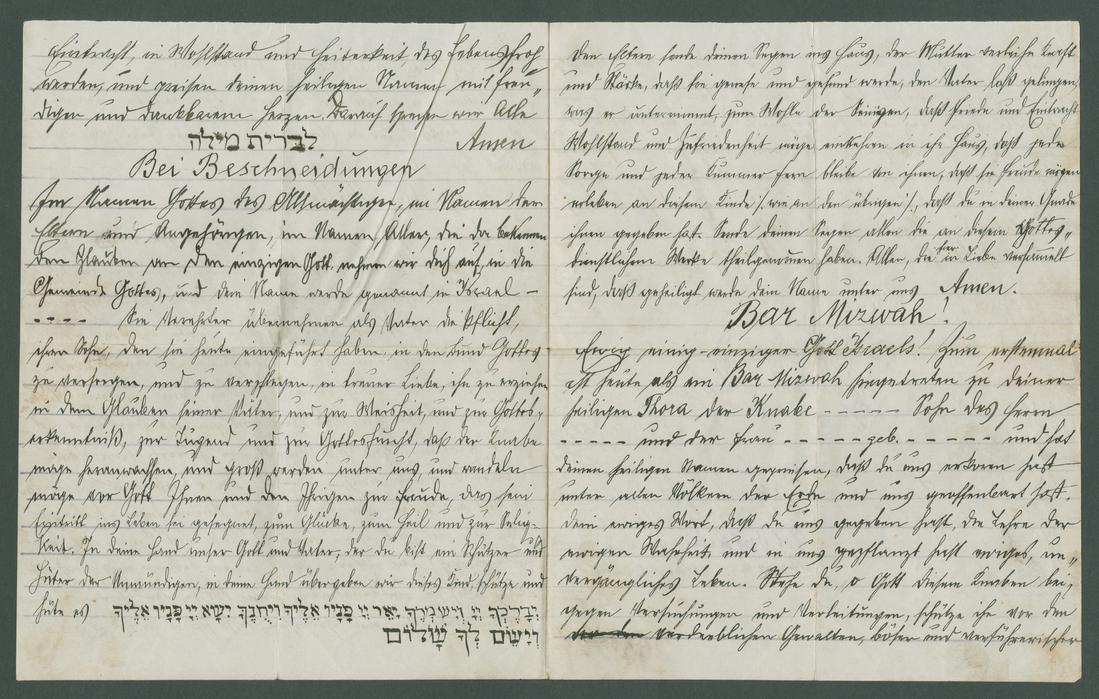 Eintracht, in Wohlstand und Heiterkeit des Lebens froh
werden, und preisen deinen heiligen Namen mit freu-
digen und dankbarem Herzen. Darauf sprechen wir Alle
Amen
לברית מילה
Bei Beschneidungen
Im Namen Gottes des Allmächtigen, im Namen der
Eltern und Angehörigen, im Namen Aller, die da bekennen
den Glauben an den einzigen Gott, nehmen wir dich auf in die
Gemeinde Gottes, und dein Name werde genannt in Israel –
- - - - Sie Verehrter übernehmen als Vater die Pflicht,
ihren Sohn, den sie heute eingeführt haben in den Bund Gottes
zu versorgen, und zu verpflegen, in treuer Liebe, ihn zu erziehen
in dem Glauben seiner Väter, und zur Weisheit, und zur Gottes-
erkenntniß, zur Tugend und zur Gottesfurcht, daß der Knabe
möge heranwachsen, und groß werden unter uns, und wandeln
möge vor Gott Ihnen und den Ihrigen zur Freude, das sein
Eintritt ins Leben sei gesegnet, zum Glücke, zum Heil und zur Selig-
keit. In deine Hand unser Gott und Vater, der du bist ein Schützer und
Hüter der Unmündigen, in deine Hand übergeben wir dieses Kind, schütze und
hüte es יְבָרֶכְךָ יְיָ וְיִשְׁמְרֶךָ יָאֵר יְיָ פָּנָיו אֵלֶיךָ וִיחֻנֶּךָּ יִשָּׂא יְיָ פָּנָיו אֵלֶיךָ
וְיָשֵׂם לְךָ שָׁלוֹם
Den Eltern sende deinen Segen ins Haus, der Mutter verleihe Kraft
und Stärke, daß sie genese und gesund werde, den Vater laß gelingen,
was er unternimmt, zum Wohle der Seinigen, daß Friede und Eintracht
Wohlstand und Zufriedenheit möge einkehren in ihr Haus, daß jede
Sorge und jeder Kummer fern bleibe von ihnen, daß sie Freude mögen
erleben an diesem Kinde /: wie an den übrigen :/, daß du in deiner Gnade
ihnen gegeben hast. Sende deinen Segen allen die an diesem Gottes-
dienstlichem Werke theilgenommen haben. Allen, die hier in Liebe versammelt
sind, daß geheiligt werde dein Name unter uns Amen.
Bar Mizwah!
Ewig einig-einziger Gott Israels! Zum erstenmal
ist heute als ein Bar Mizwah hingetreten zu deiner
heiligen Thora der Knabe - - - - - Sohn des Herrn
- - - - - und der Frau - - - - - geb. - - - - - und hat
deinen heiligen Namen gepriesen, daß du uns erkoren hast
unter allen Völkern der Erde und uns geoffenbart hast.
dein ewiges Wort, daß du uns gegeben hast, die Lehre der
ewigen Wahrheit, und in uns gepflanzt hast ewiges, un-
vergängliches Leben. Stehe du, o Gott diesem Knaben bei,
gegen Versuchungen und Verleitungen, schütze ihn vor den
vor den verderblichen Gewalten, böser und verführerischer